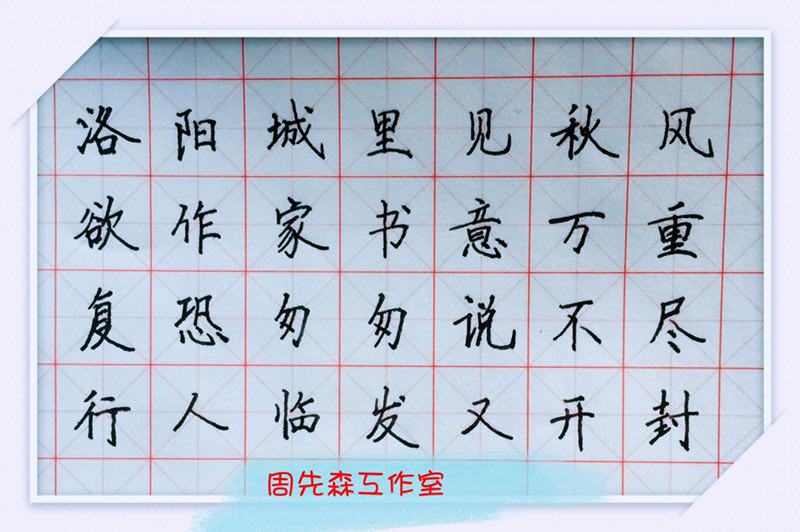 洛阳城里见秋风
欲作家书意万重
复恐匆匆说不尽
行人临发又开封
周先森工作室